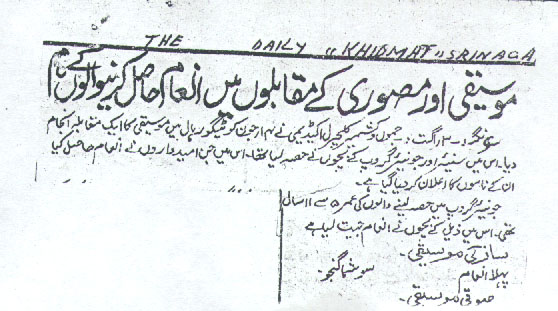 THE DAILY "KHIDMAT" SRINAGA
موسیقی اور مصوری کے مقابلوں میں انعام حاصل کرنیوالوں کے نام
سرینگر۔ ۲ اگست: جموں وکشمیر کلچرل اکیڈیمی نے ۳۰ جون کو ٹیگور ہال میں موسیقی کا ایک مقابلہ انجام
دیا۔ اس میں سنیئر اور جونیئر گروپ کے بچوں نے حصہ لیا تھا۔ اس میں جن امیدواروں نے انعام حاصل کیا
ان کے ناموں کا اعلان کردیا گیا ہے۔
جونیئر گروپ میں حصہ لینے والوں کی عمر ۵ سے ۱۱ سال
تھی۔ اس میں ذیل کے بچوں نے انعام جیت لیا ہے
ساز کی موسیقی۔
پہلا انعام سوشما گنجو۔
صوتی موسیقی۔